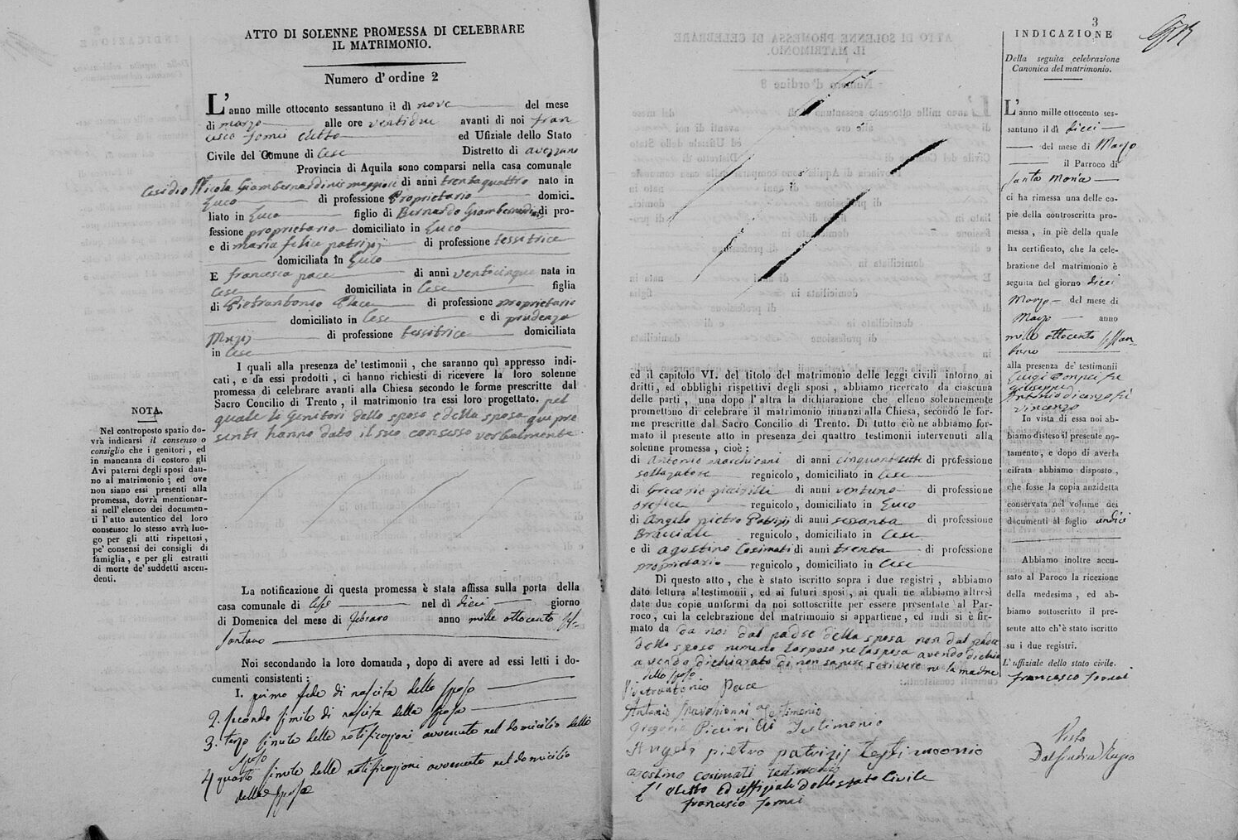 ATTO DI SOLENNE PROMESSA DI CELEBRARE
IL MATRIMONIO.
Numero d'ordine 2
L'anno mille ottocento sessantuno il dì nove del mese
di marzo alle ore ventidue avanti di noi fran
cesco eletto ed Ufiziale dello Stato
Civile del Comune di Cese Distretto di avezzano
Provincia di Aquila sono comparsi nella casa comunale
Cesidio Nicola Giambernardinis maggiore di anni trentaquattro nato in
Luco di professione Proprietario domici-
liato in Luco figlio di Bernardo di pro-
fessione proprietario domiciliato in Luco
e di maria felice patrizj di professione tessitrice
domiciliata in Luco
E francesca pace di anni venticinque nata in
Cese domiciliata in Cese figlia
di Pietrantonio Pace di professione proprietario
domiciliato in Cese e di prudenza
di professione tessitrice domiciliata
in Cese
I quali alla presenza de' testimonii, che saranno quì appresso indi-
cati, e da essi prodotti, ci hanno richiesti di ricevere la loro solenne
promessa di celebrare avanti alla Chiesa secondo le forme prescritte dal
Sacro Concilio di Trento, il matrimonio tra essi loro progettato. pel
quale li Genitori dello sposo e della sposa qui pre
senti hanno dato il suo consesso verbalmente
NOTA.
Nel controposto spazio do-
vrà indicarsi il consenso o
consiglio che i genitori, ed
in mancanza di costoro gli
Avi paterni degli sposi dan-
no al matrimonio; ed ove
non siano essi presenti alla
promessa, dovrà menzionar-
si nell'elenco dei documen-
ti l'atto autentico del loro
consenso: lo stesso avrà luo-
go per gli atti rispettosi,
pe' consensi dei consigli di
famiglia, e per gli estratti
di morte de' suddetti ascen-
denti.
La notificazione di questa promessa è stata affissa sulla porta della
casa comunale di nel dì dieci giorno
di Domenica del mese di Febraro anno mille ottocento
Noi secondando la loro domanda, dopo di avere ad essi letti i do-
cumenti consistenti:
1. primo fede di nascita dello sposo
2. secondo simile di nascita della sposa
3. terzo simile delle notificazioni avvenute nel domicilio dello
sposo
4 quarto simile delle notificazioni avvenute nel domicilio
della sposa
ed il capitolo VI. del titolo del matrimonio delle leggi civili intorno ai
dritti, ed obblighi rispettivi degli sposi, abbiamo ricercato da ciascuna
delle parti, una dopo l'altra la dichiarazione che elleno solennemente
promettono di celebrare il matrimonio innanzi alla Chiesa, secondo le for-
me prescritte dal Sacro Concilio di Trento. Di tutto ciò ne abbiamo for-
mato il presente atto in presenza dei quattro testimonii intervenuti alla
solenne promessa, cioè:
di Antonio di anni di professione
regnicolo, domiciliato in Cese
di di anni ventuno di professione
orefice regnicolo, domiciliato in Luco
di Angelo pietro Patrizj di anni sessanta di professione
Bracciale regnicolo, domiciliato in Cese
e di agostino Cosimati di anni trenta di professione
proprietario regnicolo, domiciliato in Cese
Di questo atto, che è stato iscritto sopra i due registri, abbiamo
dato lettura a'testimonii, ed ai futuri sposi, ai quali ne abbiamo altresì
date due copie uniformi da noi sottoscritte per essere presentate al Par-
roco, cui la celebrazione del matrimonio si appartiene, ed indi si è fir-
mato da da noi dal padre della sposa non dal padre
dello sposo nemeno lo sposo ne la sposa avendo dichia
avendo dichiarato di non sapere scrivere ne la madre
dello sposo
Pietrantonio Pace
Antonio Testimonio
Testimonio
Angelo pietro patrizj testimonio
agostino cosimati testimonio
L'eletto ed uffiziale dello stato Civile
francesco
3
INDICAZIONE
Della seguita celebrazione
Canonica del matrimonio.
L'anno mille ottocento ses-
santuno il dì dieci
del mese di Marzo
il Parroco di
Santa Maria
ci ha rimessa una delle co-
pie della controscritta pro-
messa, in piè della quale
ha certificato, che la cele-
brazione del matrimonio è
seguita nel giorno dieci
Marzo del mese di
Marzo anno
mille ottocento
alla presenza de' testimonii
Luigi
Giuseppe
Antonio
Vincenzo
In vista di essa noi ab-
biamo disteso il presente no-
tamento, e dopo di averla
cifrata abbiamo disposto,
che fosse la copia anzidetta
conservata nel volume dei
documenti al foglio undici
Abbiamo inoltre accu-
sato al Paroco la ricezione
della medesima, ed ab-
biamo sottoscritto il pre-
sente atto ch'è stato iscritto
su i due registri.
L'uffiziale dello stato civile.
francesco
Visto